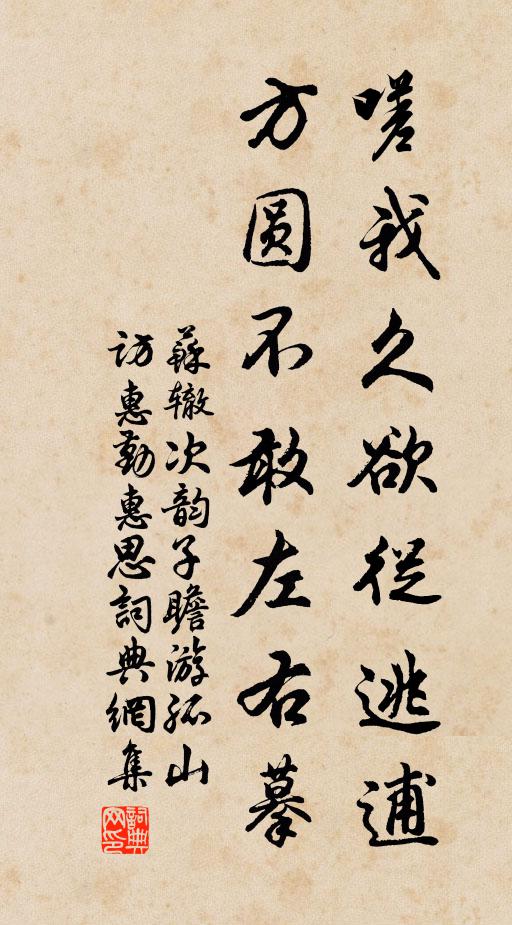 嗟我久欲從逃逋
方圆不敢左右摹
蘇辙次韵子瞻游孤山
访惠勤惠思詞典網集
詞典网印